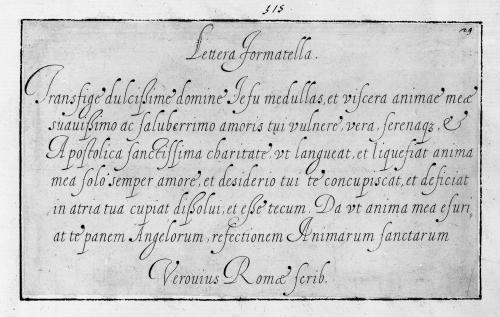 515
29
Lettera formatella.
Transfige dulcißime domine Iesu medullas, et viscera animae meæ
suauißimo ac saluberrimo amoris tui vulnere, vera, serenaqz, &
Apostolica sanctissima charitate, vt langueat, et liquefiat anima
mea solo semper amore, et desiderio tui te concupiscat, et deficiat
in atria tua cupiat dißolui, et eße tecum. Da vt anima mea esuri,
at te panem Angelorum, refectionem Animarum sanctarum
Verouius Romæ scrib.